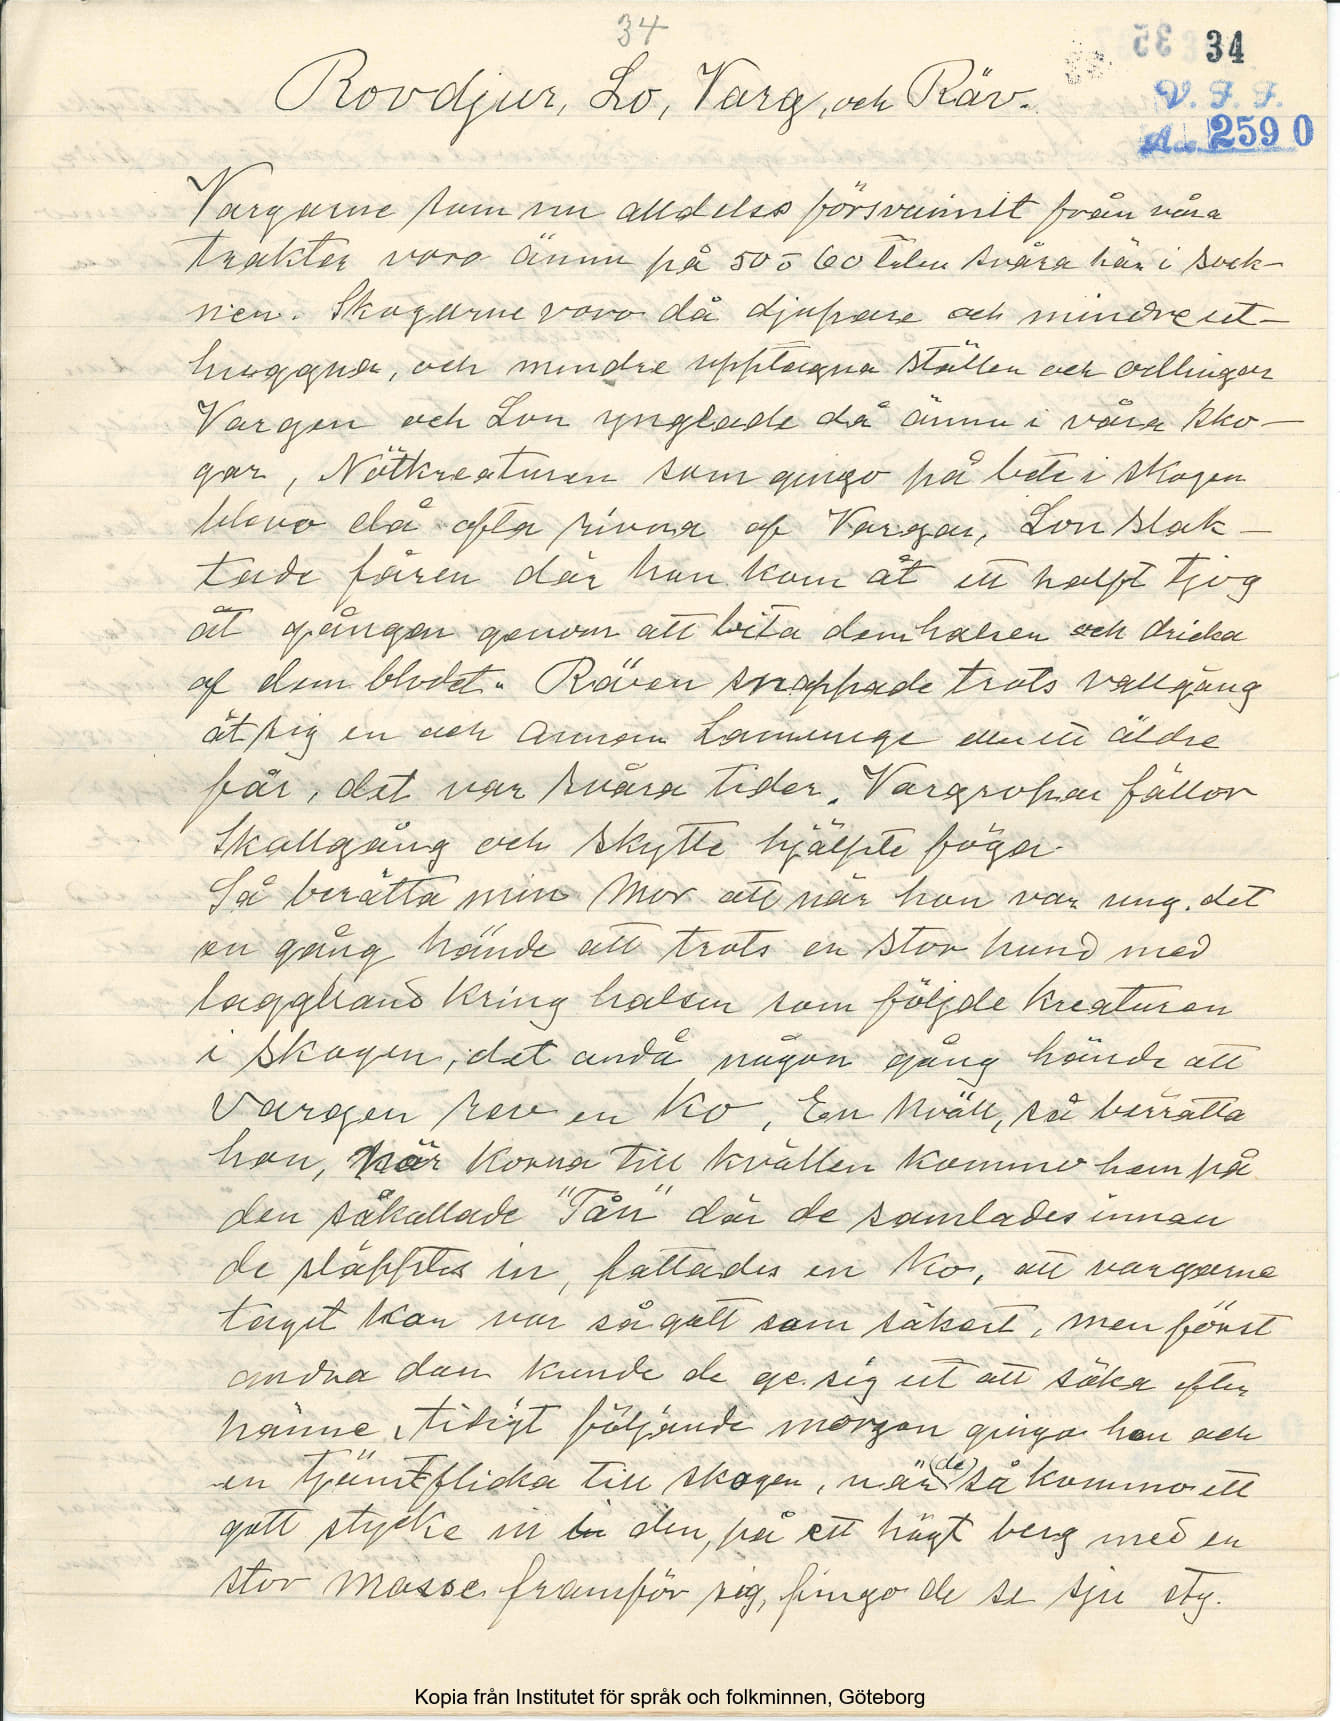 34
34
V. F. F.
Acc. 2590
Rovdjur, Lo, Varg, och Räv.
Vargarne som nu alldeles försvunnit från våra
trakter voro ännu på 50 o 60 talen svåra här i sock-
nen. Skogarne voro då djupare och mindre ut-
huggna, och mindre upptagna ställen och odlingar
Vargen och Lon ynglade då ännu i våra sko-
gar, Nötkreaturen som gingo på bete i skogen
blevo då ofta rivna af Vargar, Lon slak-
tade fåren där hon kom åt ett halft tjog
åt gången genom att bita dem halsen och dricka
af dem blodet. Räven snappade trots vallgång
åt sig en och annan Lammunge eller ett äldre
får, det var svåra tider. Vargropar fällor
Skallgång och skytte hjälpte föga.
Så berätta min Mor att när hon var ung. det
en gång hände att trots en stor hund med
taggband kring halsen som följde kreaturen
i skogen, det ändå någon gång hände att
Vargen rev en ko, En kväll, så berrätta
hon, när korna till kvällen kommo hem på
den såkallade "Tån" där de samlades innan
de släpptes in, fattades en ko, att vargarne
tagit kon var så gott som säkert, men först
andra dan kunde de ge sig ut att söka efter
hänne, tidigt följande morgon gingo hon och
en tjänstflicka till skogen, när (de) så kommo ett
gott stycke in i den, på ett högt berg med en
stor mosse framför sig, fingo de se sju sty.
Kopia från Institutet för språk och folkminnen, Göteborg